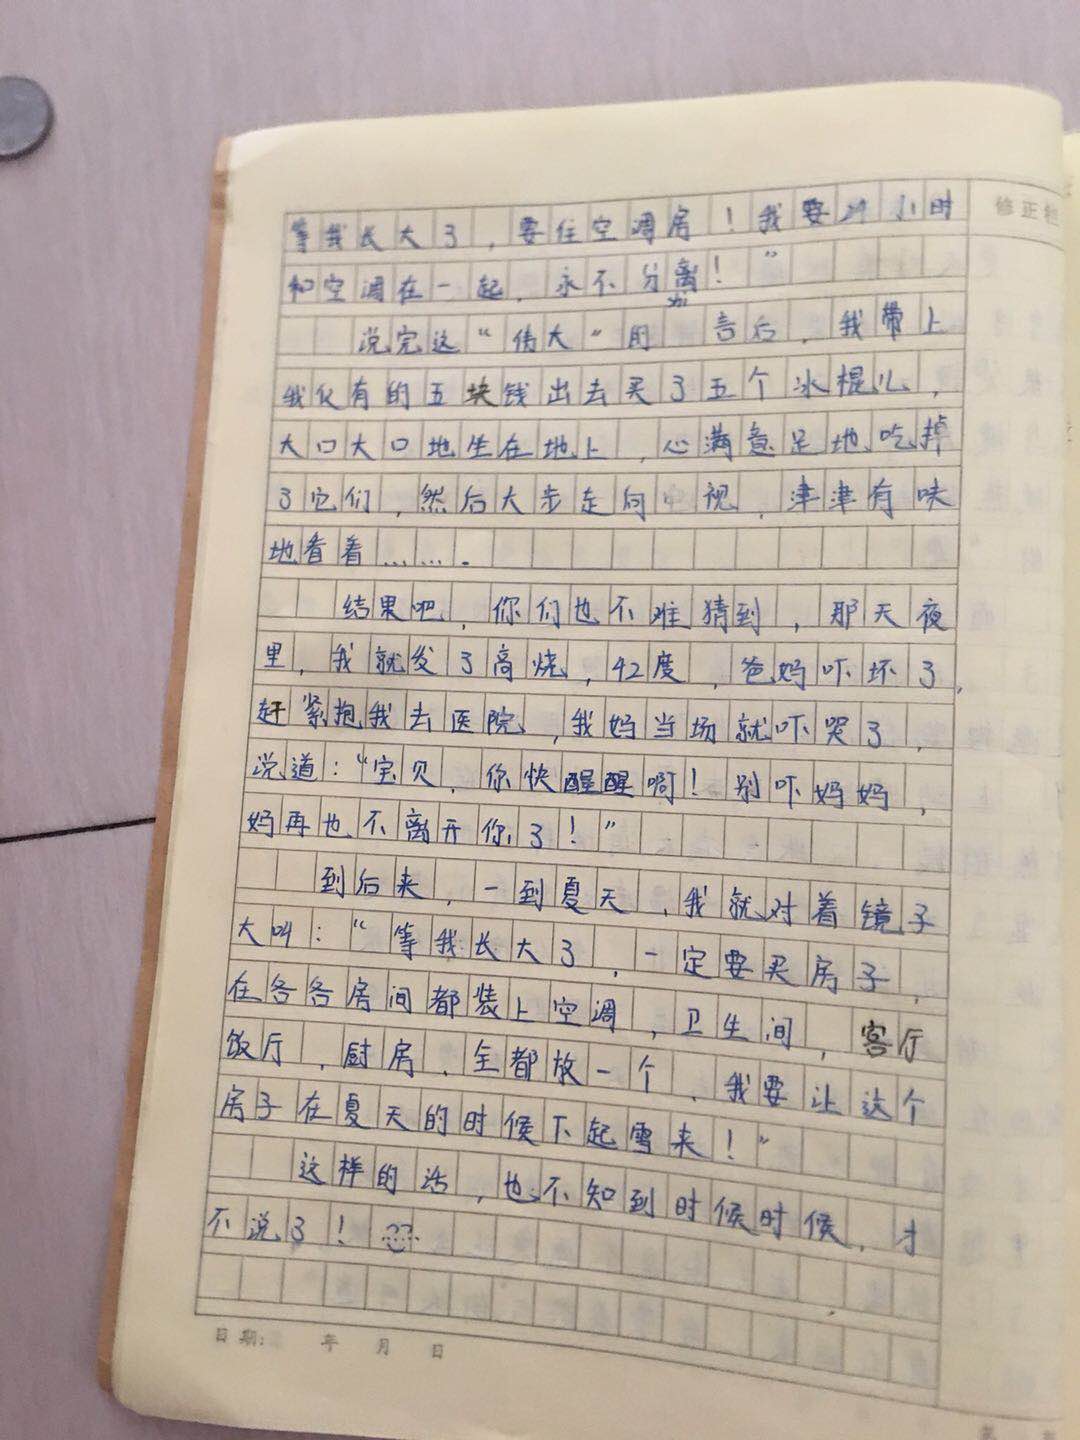 等我长大了，要住空调房！我要24小时
和空调在一起，永不分离！”
说完这“伟大”的 言后，我带上
我仅有的五块钱出去买了五个冰棍儿，
大口大口地坐在地上，心满意足地吃掉
了它们，然后大步走向 视，津津有味
地看看……．
结果吧，你们也不难猜到，那天夜
里，我就发了高烧，42度，爸妈吓坏了，
赶紧抱我去医院，我妈当场就吓哭了，
说道：“宝贝，你快醒醒啊！别吓妈妈，
妈再也不离开你了！”
到后来，一到夏天，我就对着镜子
大叫：“等我长大了，一定要买房子，
在各各房间都装上空调，卫生间，客厅
饭厅，厨房，全都放一个，我要让这个
房子在夏天的时候下起雪来！”
这样的话，也不知到时候时候，才
不说了！
修正栏
日期： 年 月 日